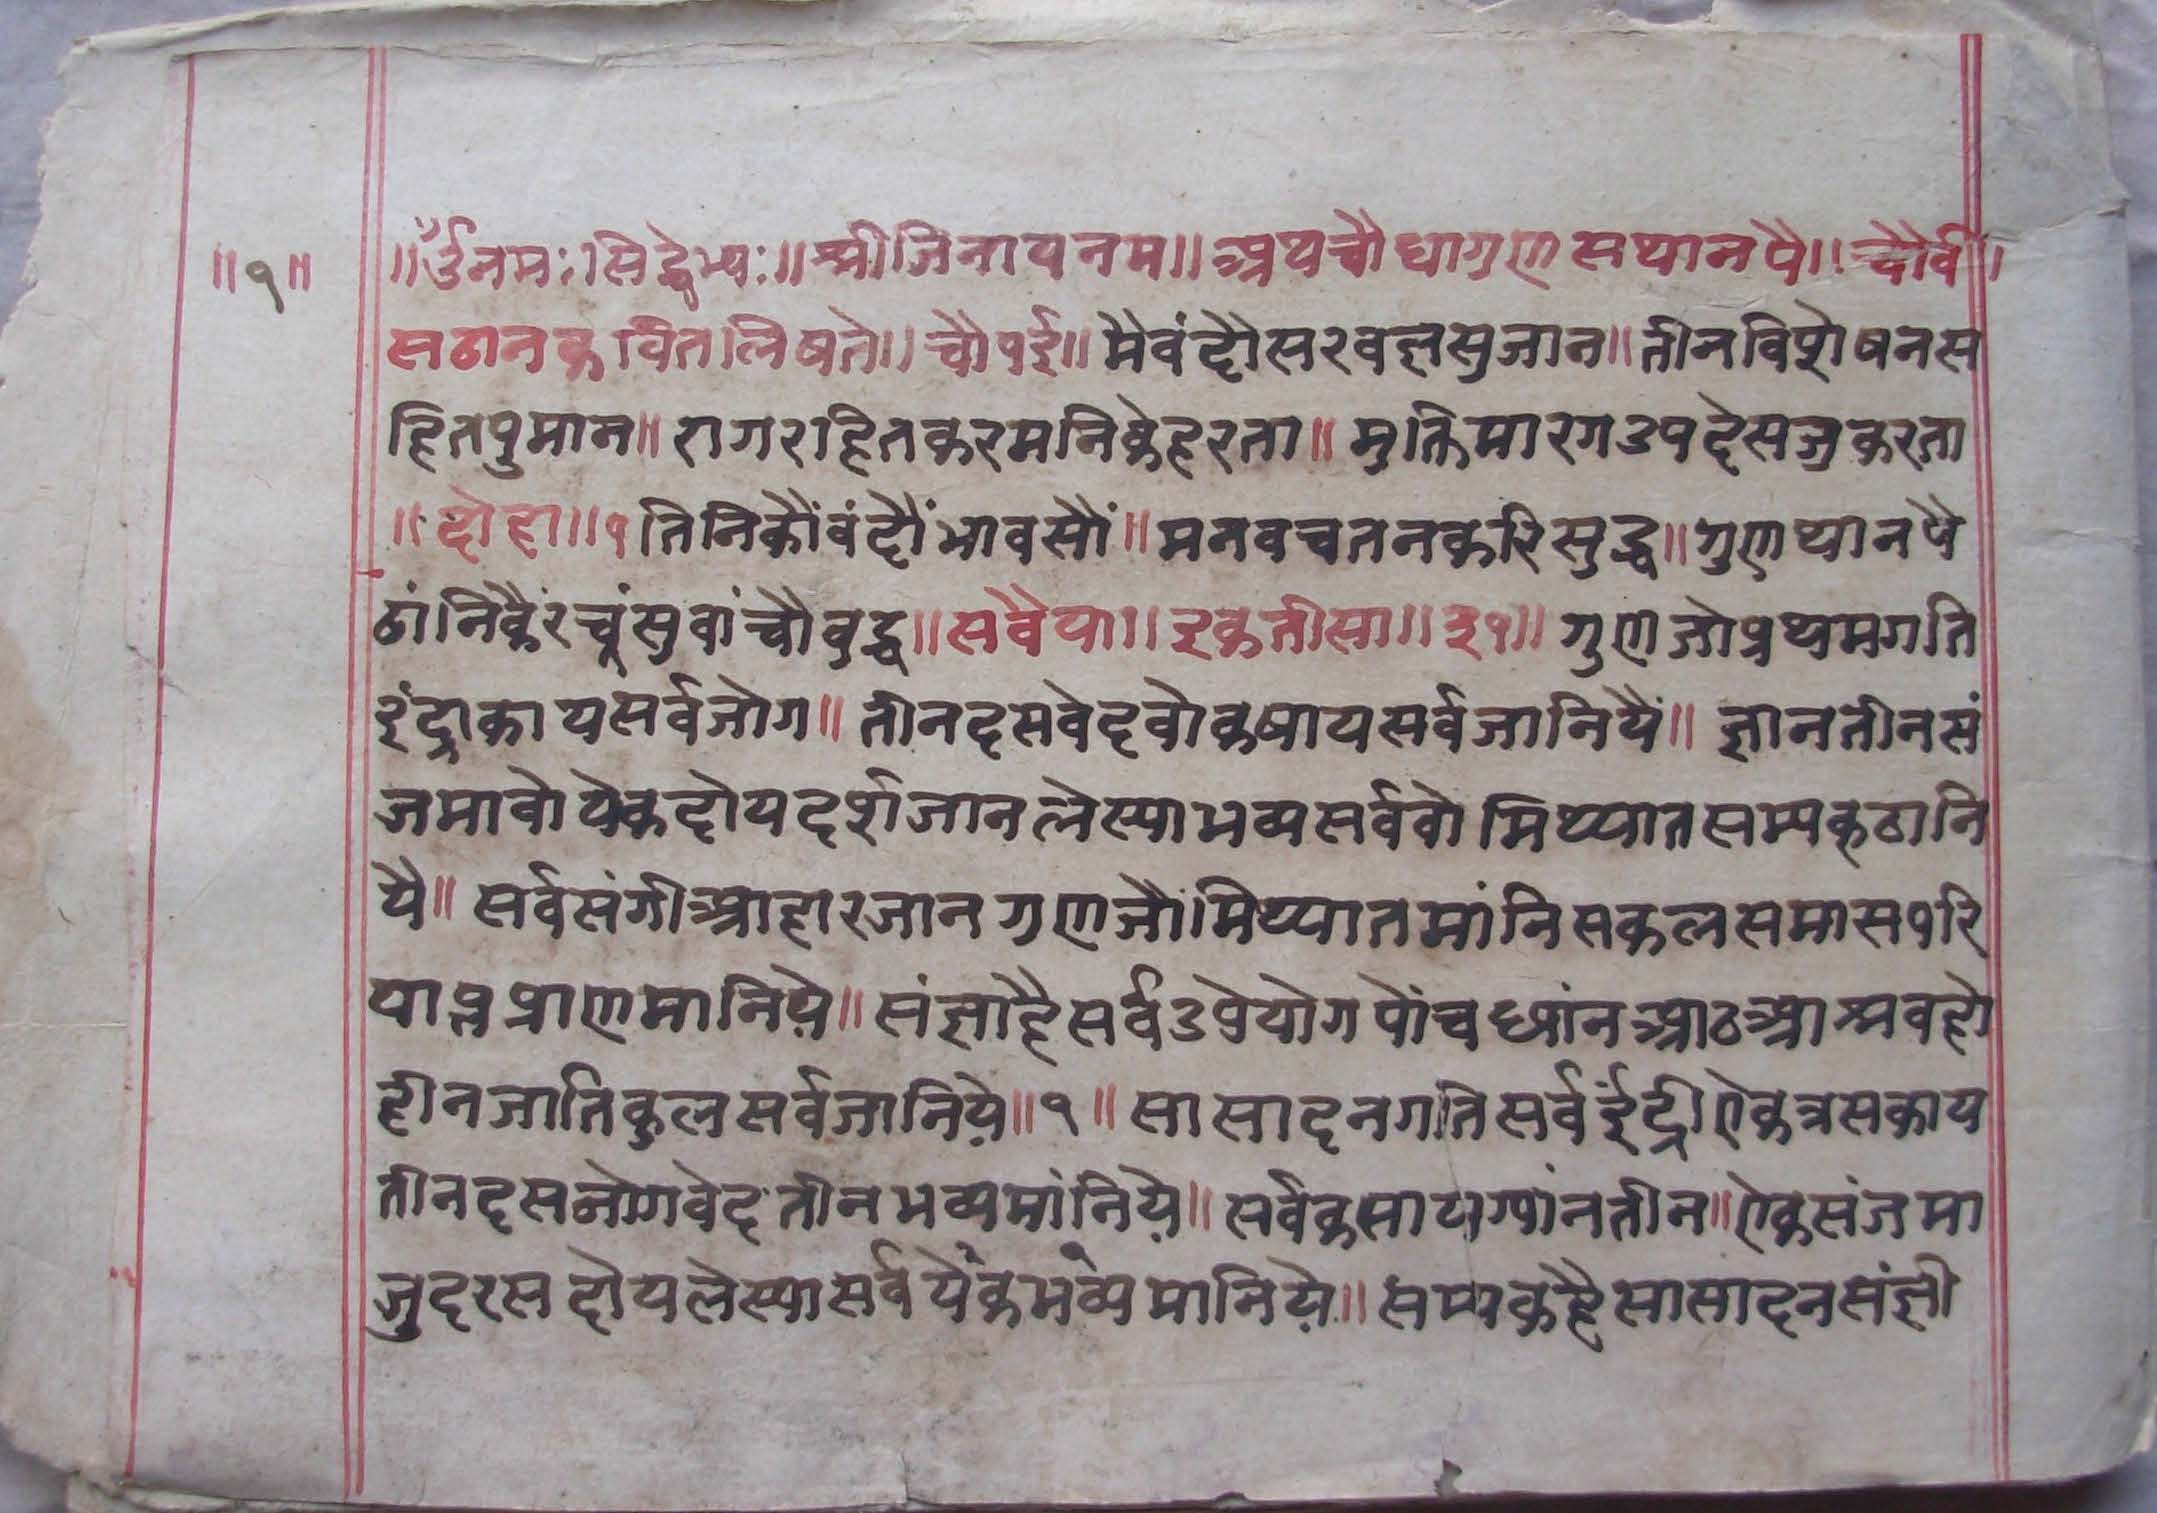 ॥१॥
॥ॐनमः।सिद्धेभ्यः॥श्रीजिनायनम॥अथचौधागुणसथानपै॥चौवी।
सठानकवितलिषते॥चौपई॥मैवंदौसरवज्ञसुजान॥तीनविशेषनस
हितपुमान॥रागरहितकरमनिकेहरता॥मुक्तिमारगउपदेसजुकरता
॥दोहा॥१तिनिकौंवंदौंभावसौं॥मनवचतनकरिसुद्ध॥गुणथानपै
ठांनिकैरचूंसुवांचौवुद्ध॥सवैया॥इकतीसा॥३१॥गुणजोप्रथमगति
इंद्रीकायसर्वजोग॥तीनदसवेदवोकषायसर्वजानियै॥ज्ञानतीनसं
जमावोयेकदोयदर्शजानलेस्याभव्यसर्ववोमिथ्यातसम्यक्ठानि
यै॥सर्वसंगीआहारजानगुणजौमिथ्यातमांनिसकलसमासपरि
याप्तप्राणमानिये॥संज्ञाहैसर्वउपेयोगपांचध्यांनआठआश्रवहो
हीनजातिकुलसर्वजानिये॥१॥सासादनगतिसर्वइंद्रीऐकत्रसकाय
तीनदसजोगवेदतीनभव्यमांनिये॥सर्वकसायग्यांनतीन॥ऐकसंजमा
जुदरसदोयलेस्यासर्वयेकभव्यमानिये॥सम्यकहैसासादनसंज्ञी